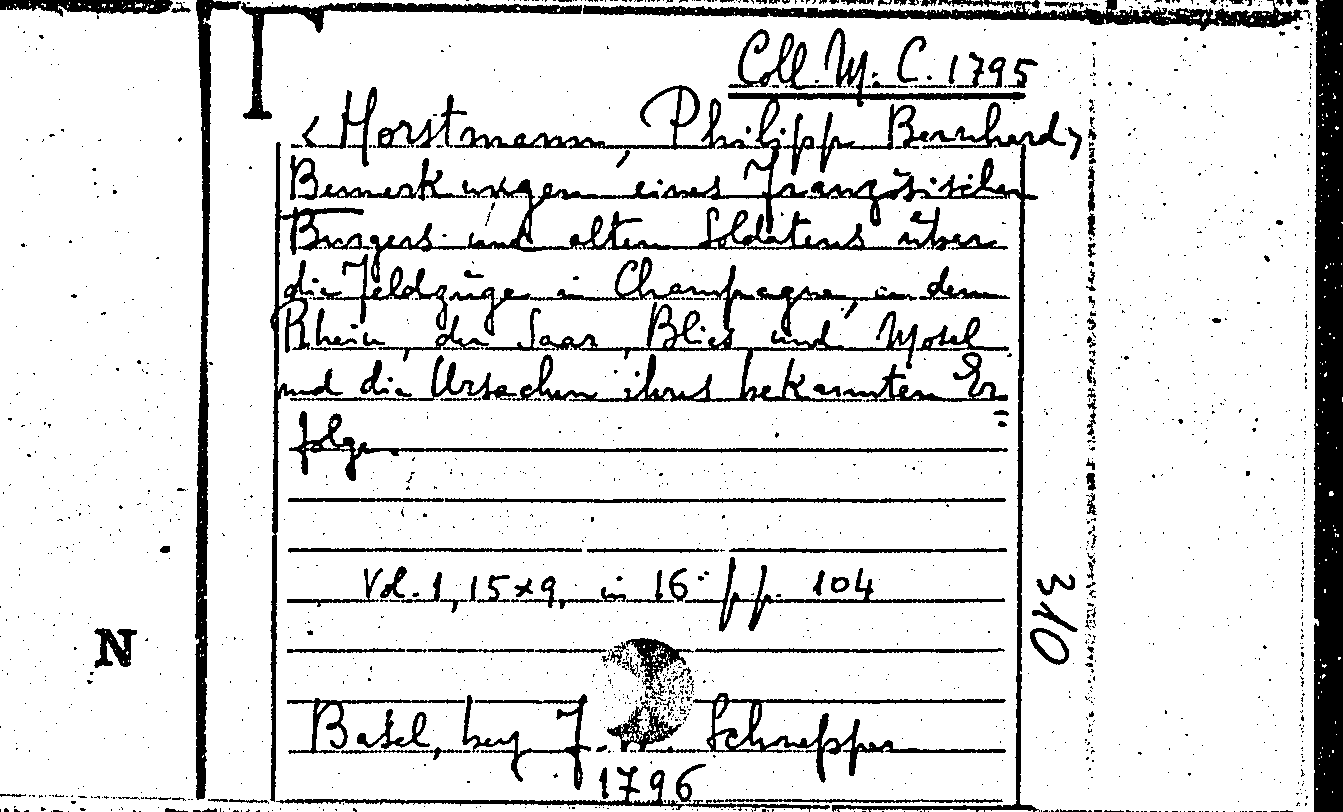 T
Coll. M. C. 1795
<Horstmann, Philipp Bernhard>
Bemerkungen eines Französischen
Burgers und alten Soldatens über
die Feldzüge in Champagne, an dem
Rhein, der Saar, Blies und Mosel
und die Ursachen ihres bekannten Er=
folge.
Vol. 1, 15x9, in 16° pp. 104
310
N
Basel, bey J. Schnepper
1796